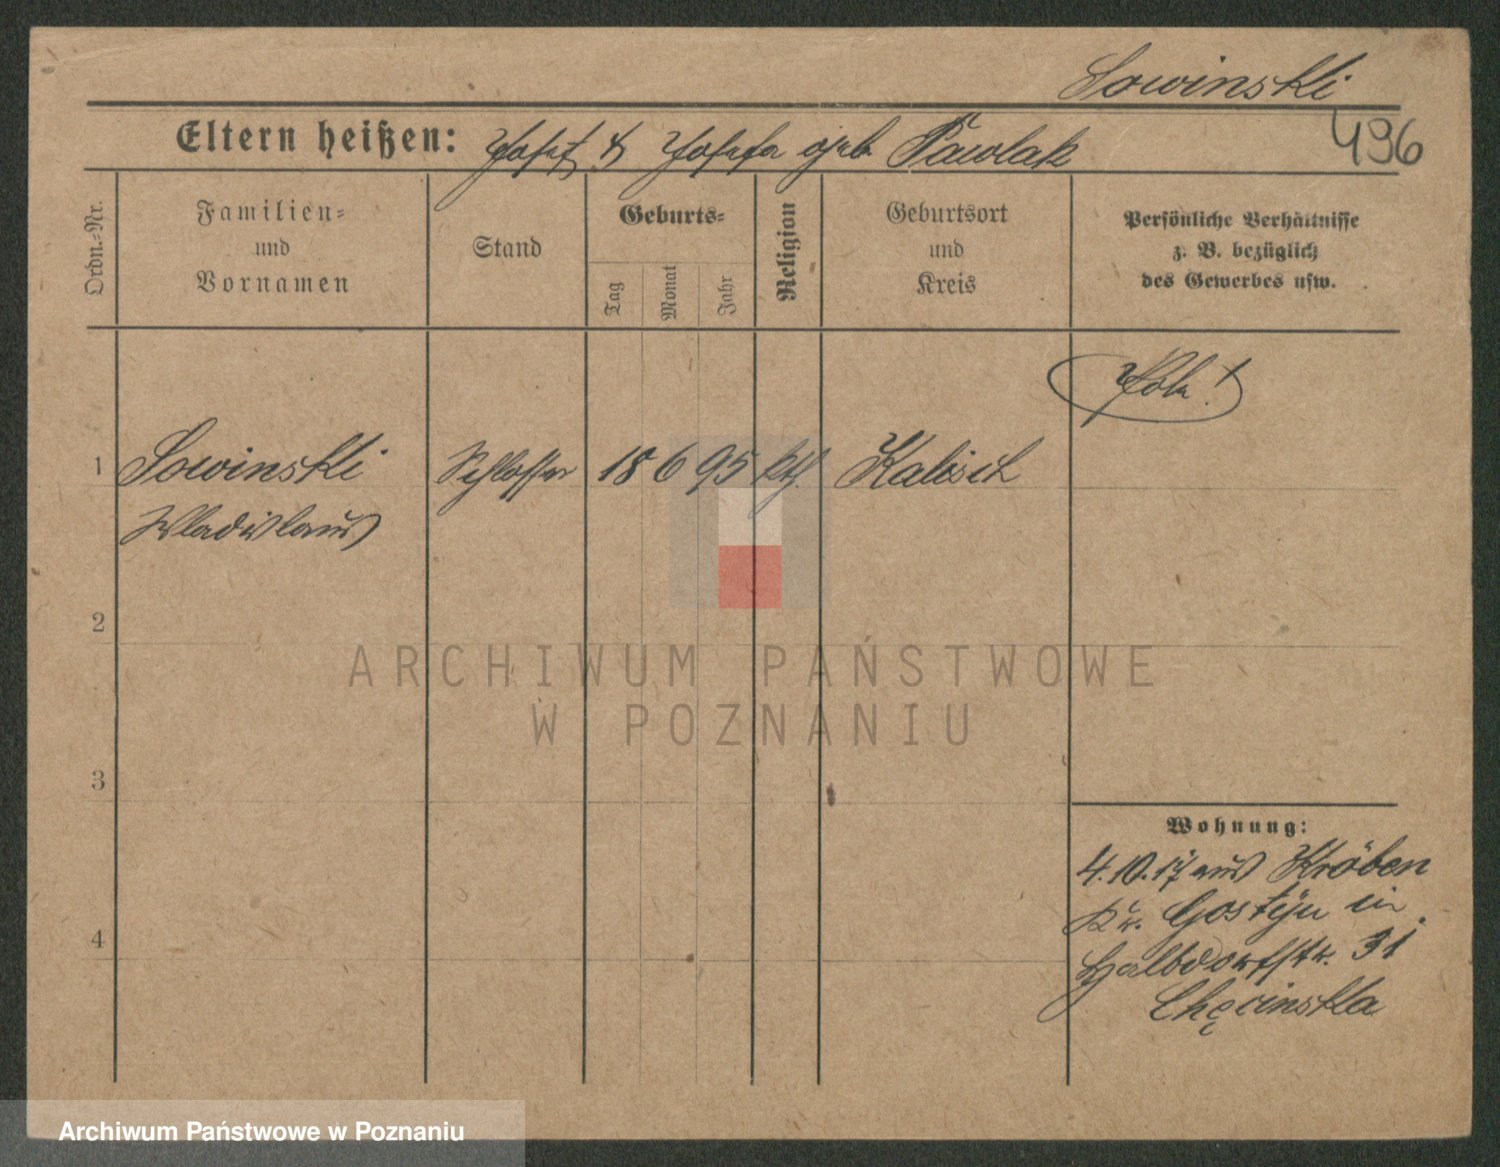 Sowinski
496
Eltern heißen: Josef & Josefa geb. Pawlak
Ordn.-Nr.
Familien-
und
Vornamen
Stand
Geburts-
Tag
Monat
Jahr
Religion
Geburtsort
und
Kreis
Persönliche Verhältnisse
z. B. bezüglich
des Gewerbes usw.
Pole!
1 Sowinski Schlosser 18 6 95 kth. Kalisch
Wladislaus
2
3
4
Wohnung:
4.10.17 aus Kröben
Kr. Gostyn in
Halbdorfstr. 31
Chęcinska
ARCHIWUM PAŃSTWOWE
W POZNANIU
Archiwum Państwowe w Poznaniu